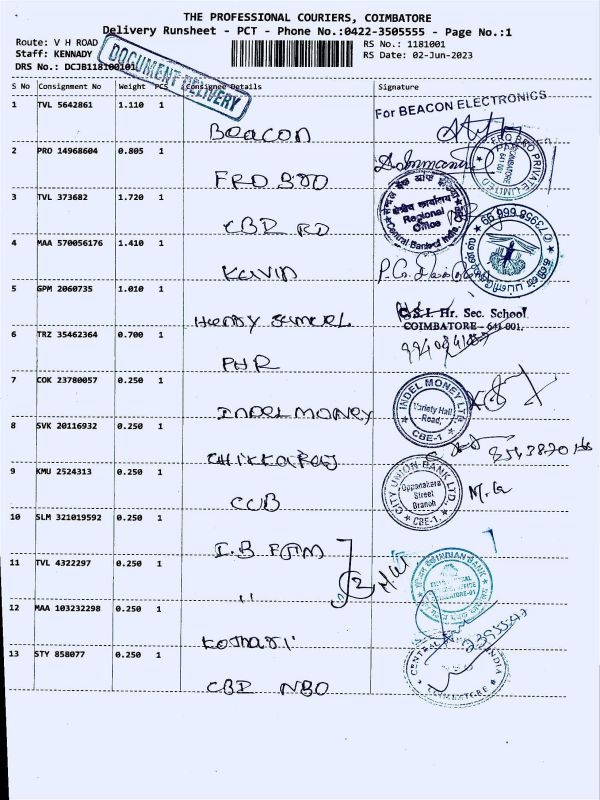 THE PROFESSIONAL COURIERS, COIMBATORE
Delivery Runsheet - PCT - Phone No.:0422-3505555 - Page No.:1
Route: V H ROAD
Staff: KENNADY
DRS No.: DCJB118100101
RS No.: 1181001
RS Date: 02-Jun-2023
DOCUMENT DELIVERY
S No Consignment No Weight PCS Consignee Details Signature
1 TVL 5642861 1.110 1
BEACON
For BEACON ELECTRONICS
2 PRO 14968604 0.805 1
FRO
3 TVL 373682 1.720 1
CBI RO
क्षेत्रीय कार्यालय
Regional
Office
Central Bank of India
4 MAA 570056176 1.410 1
KAVIN
73958 666 99
5 GPM 2060735 1.010 1
HENRY SAMUEL
C.S.I. Hr. Sec. School
COIMBATORE - 641 001.
6 TRZ 35462364 0.700 1
PHR
7 COK 23780057 0.250 1
INDEL MONEY
INDEL MONEY LTD
Variety Hall
Road,
CBE-1
8 SVK 20116932 0.250 1
CHIKKARAJ
9 KMU 2524313 0.250 1
CUB
CITY UNION BANK LTD.
Oppanakara
Street
Branch
CBE-1.
10 SLM 321019592 0.250 1
I.B
INDIAN BANK
11 TVL 4322297 0.250 1
"
12 MAA 103232298 0.250 1
KOTHARI
13 STY 858077 0.250 1
CBI NBO
CENTRAL INDIA
COIMBATORE